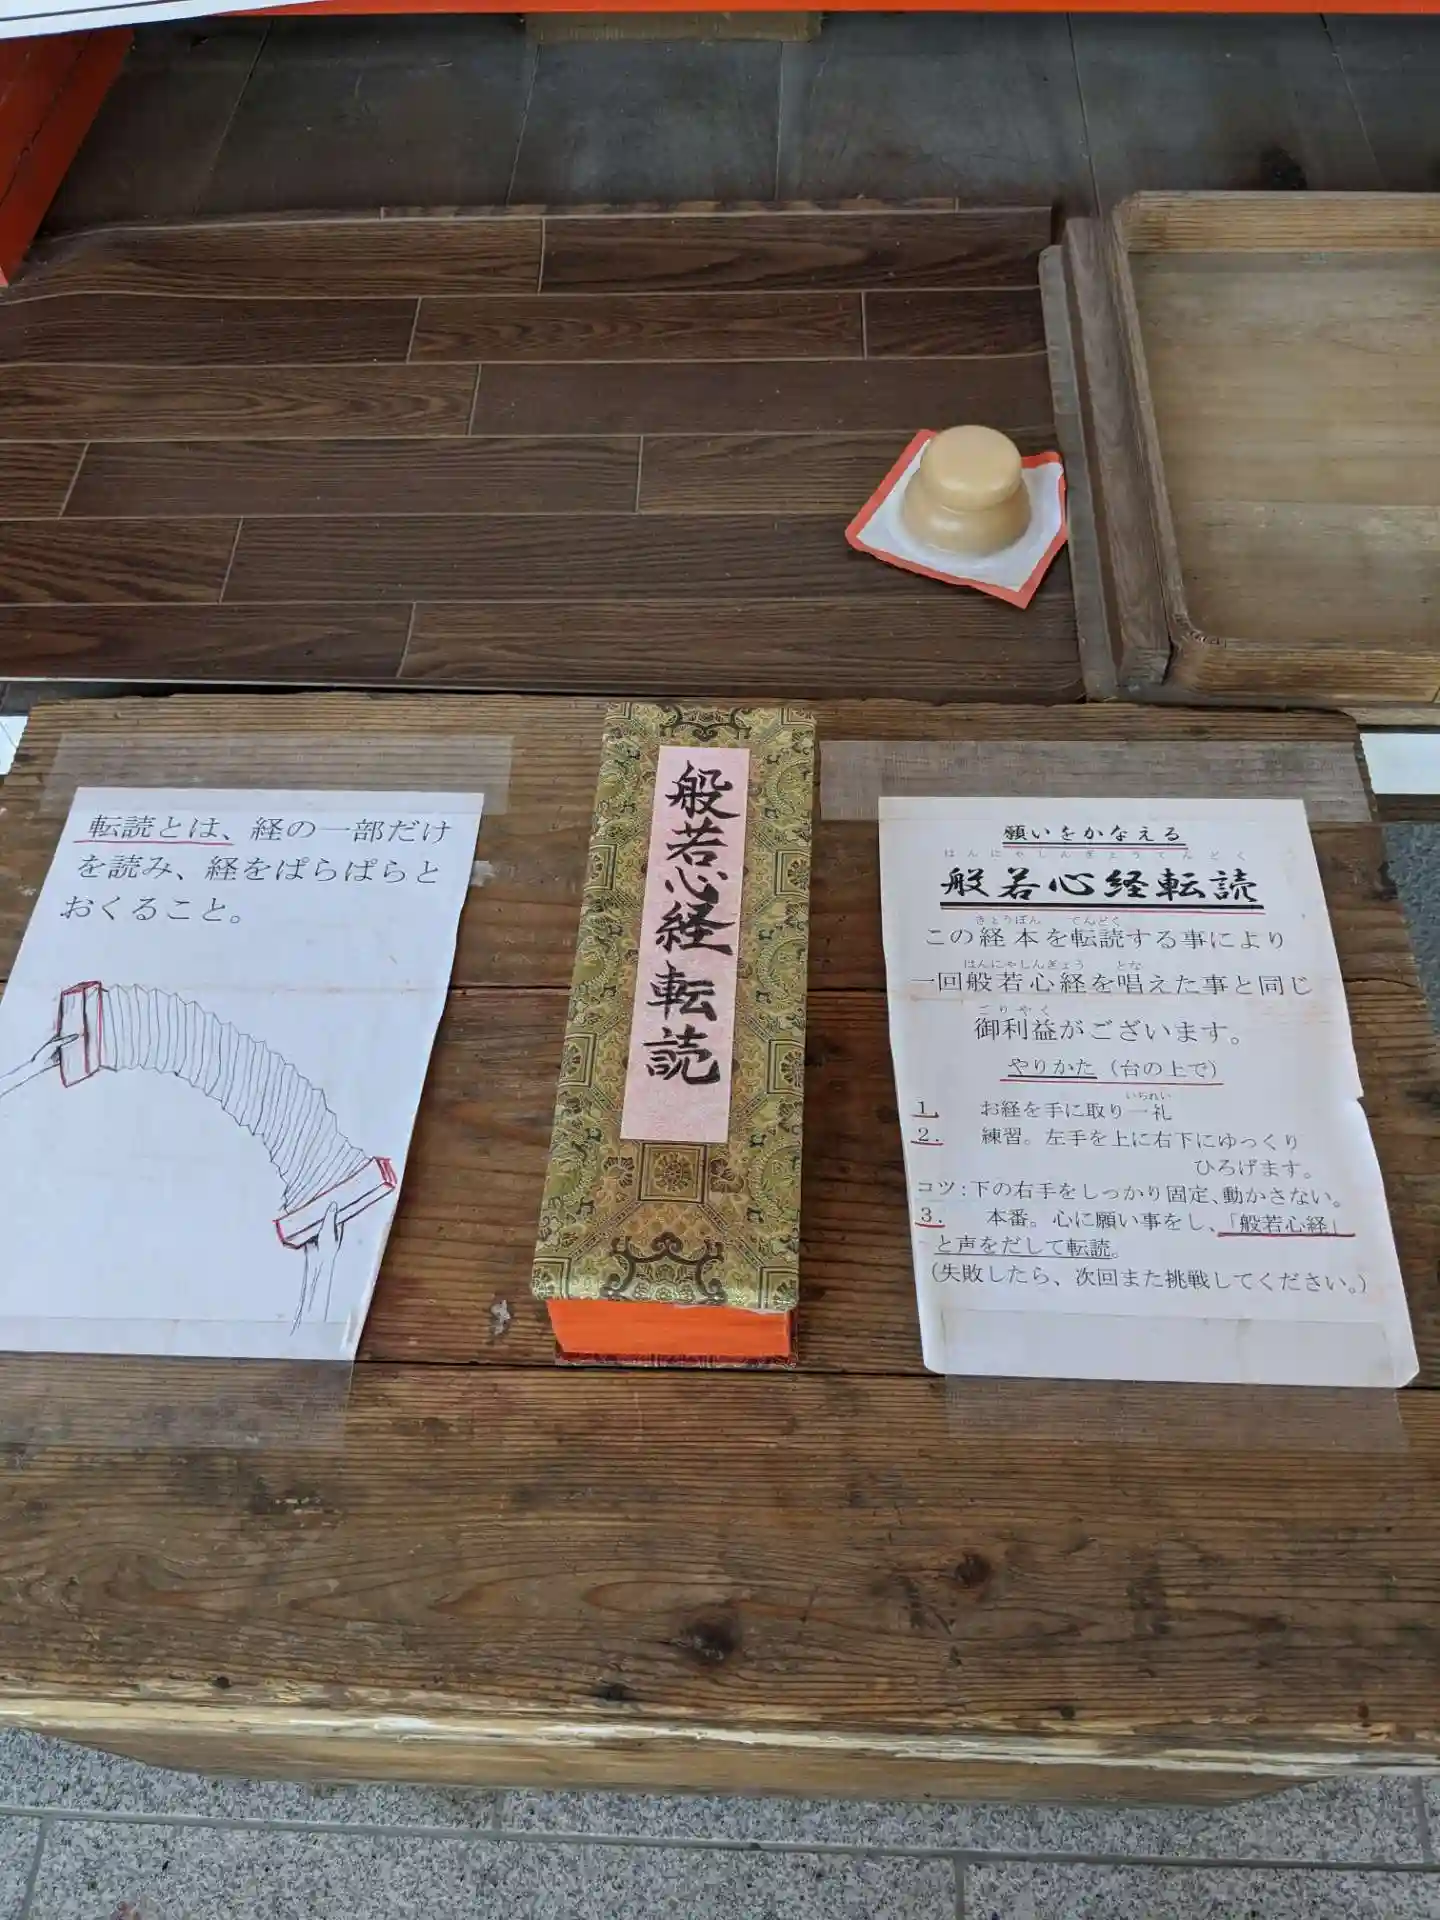 転読とは、経の一部だけ
を読み、経をぱらぱらと
おくること。
般若心経転読
願いをかなえる
はんにゃしんぎょうてんどく
般若心経転読
きょうぼん てんどく
この経本を転読する事により
はんにゃしんぎょう とな
一回般若心経を唱えた事と同じ
ごりやく
御利益がございます。
やりかた（台の上で）
いちれい
1. お経を手に取り一礼
2. 練習。左手を上に右下にゆっくり
ひろげます。
コツ：下の右手をしっかり固定、動かさない。
3. 本番。心に願い事をし、「般若心経」
と声をだして転読。
（失敗したら、次回また挑戦してください。）